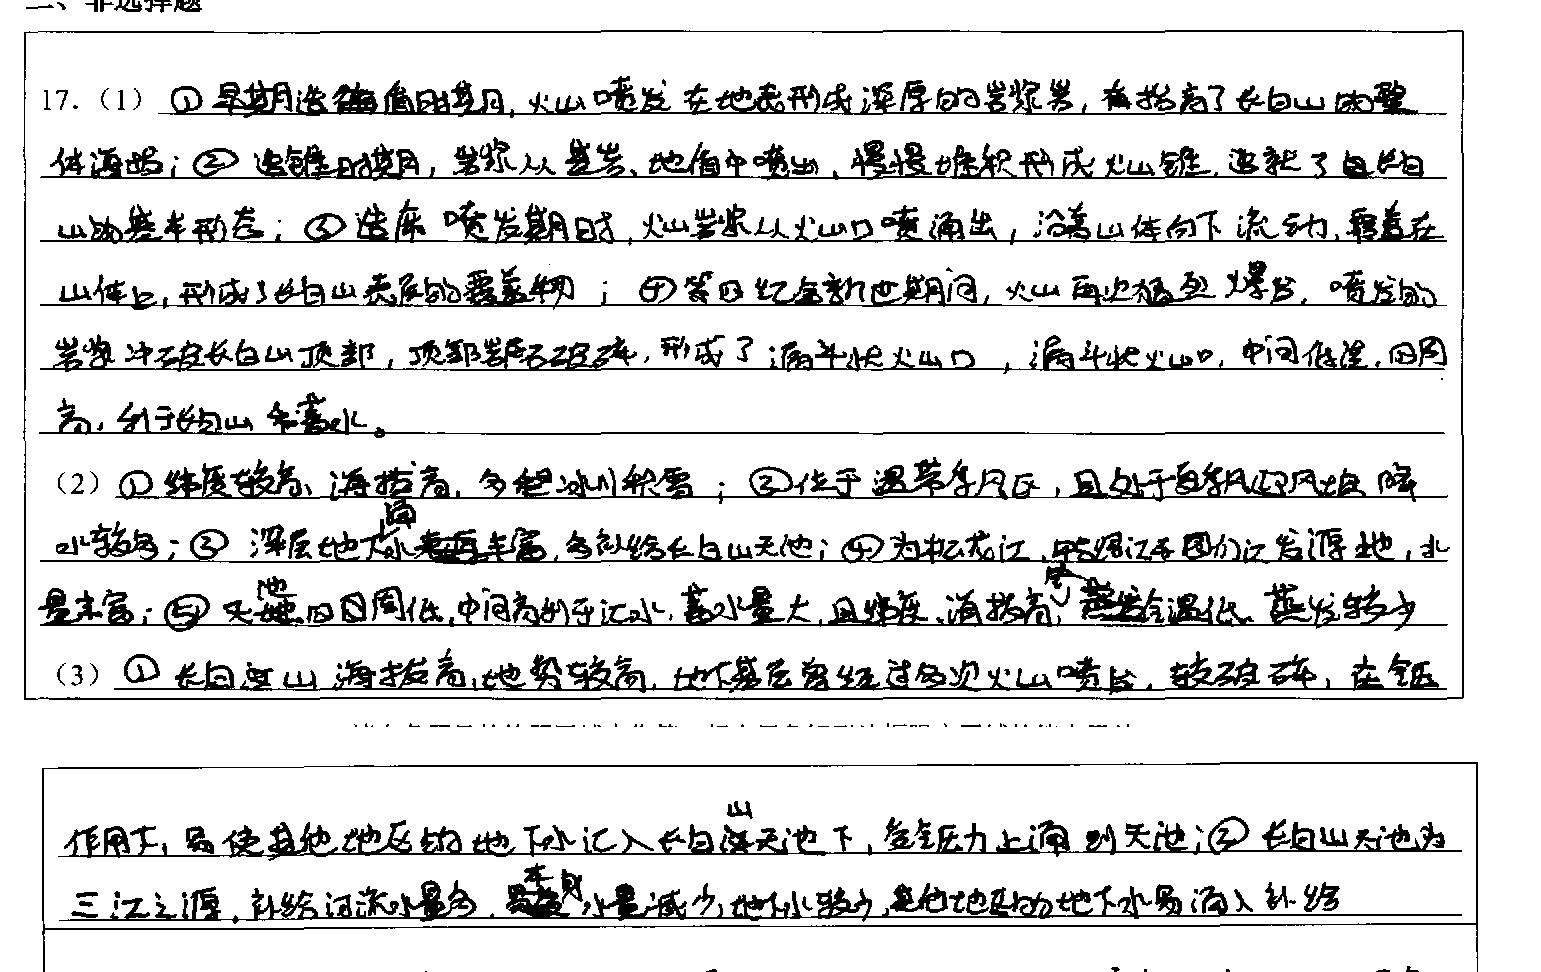 二、非选择题
17.（1）①早期造盾时期，火山喷发在地表形成深厚的岩浆岩，抬高了长白山的整
体海拔；②造锥时期，岩浆从基岩、地盾中喷出，慢慢堆积形成火山锥，造就了长白
山的基本形态；③造床喷发期时，火山岩浆从火山口喷涌出，沿着山体向下流动，覆盖在
山体上，形成了长白山表层的覆盖物；④第四纪全新世期间，火山再次猛烈爆发，喷发的
岩浆冲破长白山顶部，顶部岩石破碎，形成了漏斗状火山口，漏斗状火山口，中间低洼，四周
高，利于长白山蓄水。
（2）①纬度较高、海拔高，多冰川积雪；②位于温带季风区，且处于夏季风迎风坡降
水较多；③深层地下水丰富，多补给长白山天池；④为松花江、鸭绿江和图们江发源地，水
量丰富；⑤天池四周低，中间高利于汇水，蓄水量大，且纬度、海拔高，气温低、蒸发较少
（3）①长白山海拔高，地势较高，地下基层曾经过多次火山喷发，较破碎，在
作用下，易使其他地区的地下水汇入长白山天池下，受压力上涌到天池；②长白山天池为
三江之源，补给河流水量多，本身水量减少，地下水较少，其他地区的地下水易涌入补给